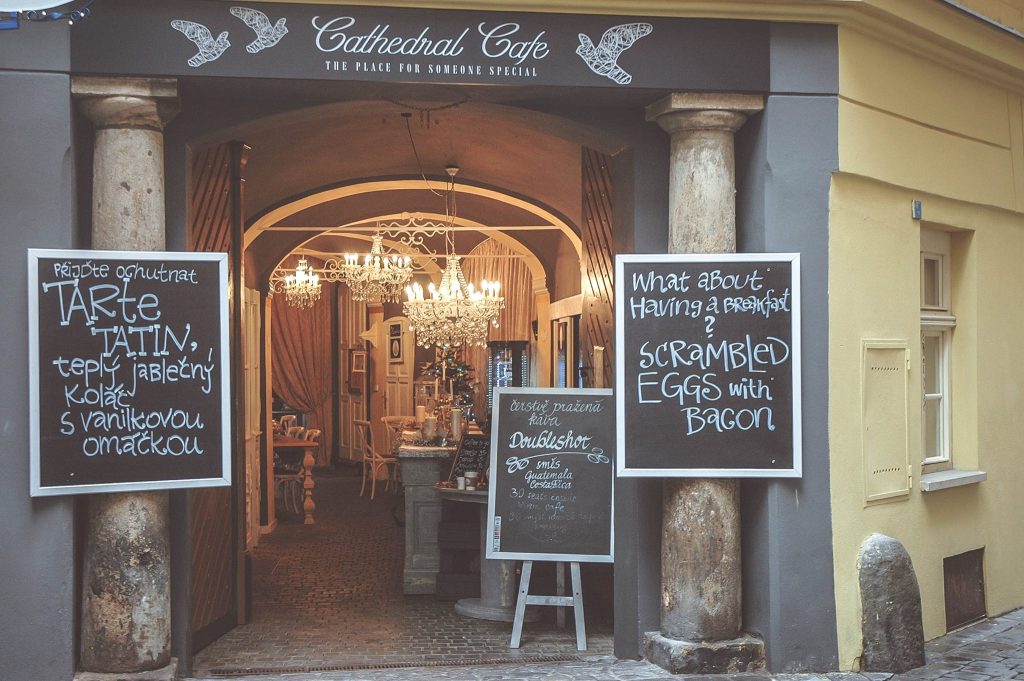 Cathedral Cafe
THE PLACE FOR SOMEONE SPECIAL
PŘIJĎTE OCHUTNAT
TARTE
TATIN,
teplý jablečný
koláč
s vanilkovou
omáčkou
WHAT ABOUT
HAVING a BREAKFAST
?
SCRAMBLED
EGGS with
BACON
čerstvě pražená
káva
Doubleshot
směs
Guatemala
Costa Rica